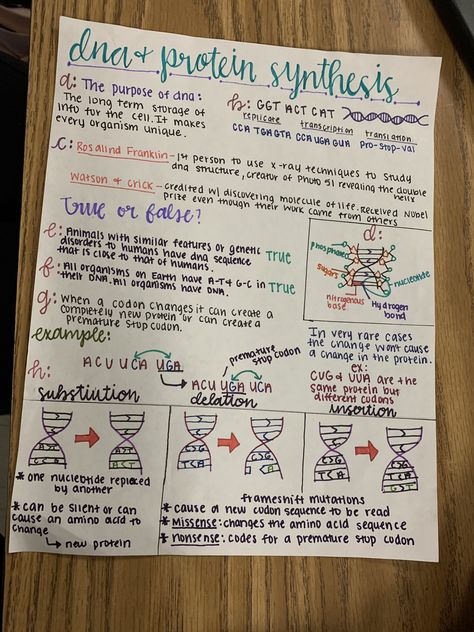 dna & protein synthesis
a: The purpose of dna:
The long term storage of
info for the cell. It makes
every organism unique.
b: GGT ACT CAT
replicate transcription translation
CCA TGA GTA CCA UGA GUA Pro-Stop-Val
c: Rosalind Franklin - 1st person to use x-ray techniques to study
dna structure, creator of Photo 51 revealing the double
helix
Watson & Crick - credited w/ discovering molecule of life. Received Nobel
Prize even though their work came from others
True or false?
e: Animals with similar features or genetic
disorders to humans have dna sequence
that is close to that of humans. True
f: All organisms on Earth have A-T & G-C in
their DNA. All organisms have DNA. True
d:
phosphate
sugar
nucleotide
nitrogenous
base
Hydrogen
bond
g: When a codon changes it can create a
completely new protein or can create a
premature stop codon.
example:
In very rare cases
the change wont cause
a change in the protein.
ex:
CUG & UUA are the
same protein but
different codons
h: ACU UCA UGA
premature stop codon
ACU UGA UCA
substiution
delation
insertion
* one nucleotide replaced
by another
* can be silent or can
cause an amino acid to
change
new protein
frameshift mutations
* cause a new codon sequence to be read
* missense: changes the amino acid sequence
* nonsense: codes for a premature stop codon